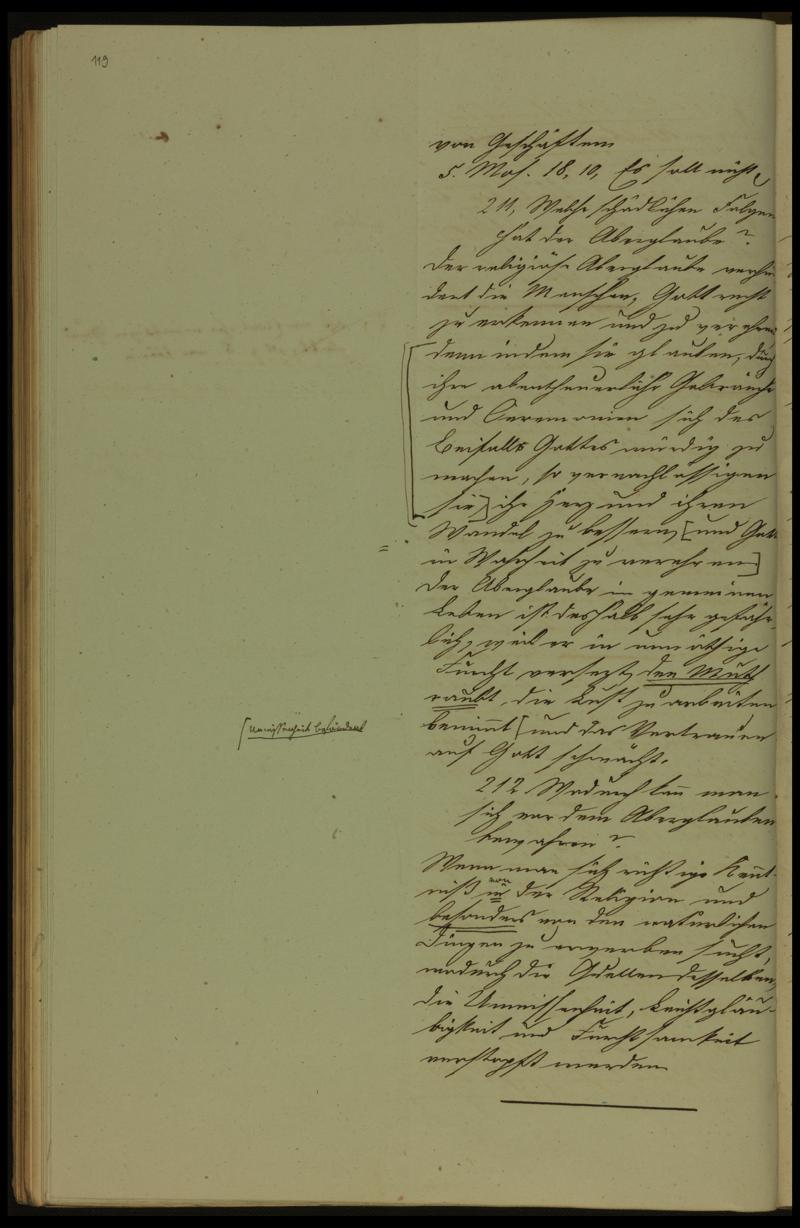 119
von Geschäften
5. Mos. 18, 10, Es soll nicht
211, Welche schädlichen Folgen
hat der Aberglaube?
Der religiöse Aberglaube verhin
dert die Menschen, Gott recht
zu erkennen und zu verehren
[denn indem sie glauben, durch
ihre abentheuerliche Gebräuche
und Ceremonien sich des
Beifalls Gottes würdig zu
machen, so vernachlässigen
sie] ihr Herz und ihren
Wandel zu bessern [und Gott
in Wahrheit zu verehren]
Der Aberglaube im gemeinen
Leben ist deshalb sehr gefähr-
lich, weil er in unnöthige
Furcht versezt, den Muth
raubt, die Lust zu arbeiten
benimmt [und das Vertrauen
[Unwissenheit befördert
auf Gott schwächt.
212 Wodurch kann man
sich vor dem Aberglauben
bewahren?
Wenn man sich richtige Kennt-
niß von in der Religion und
besonders von den natürlichen
Dingen zu erwerben sucht,
wodurch die Quellen desselben,
die Unwissenheit, Leichtgläu-
bigkeit und Furchtsamkeit
verstopft werden